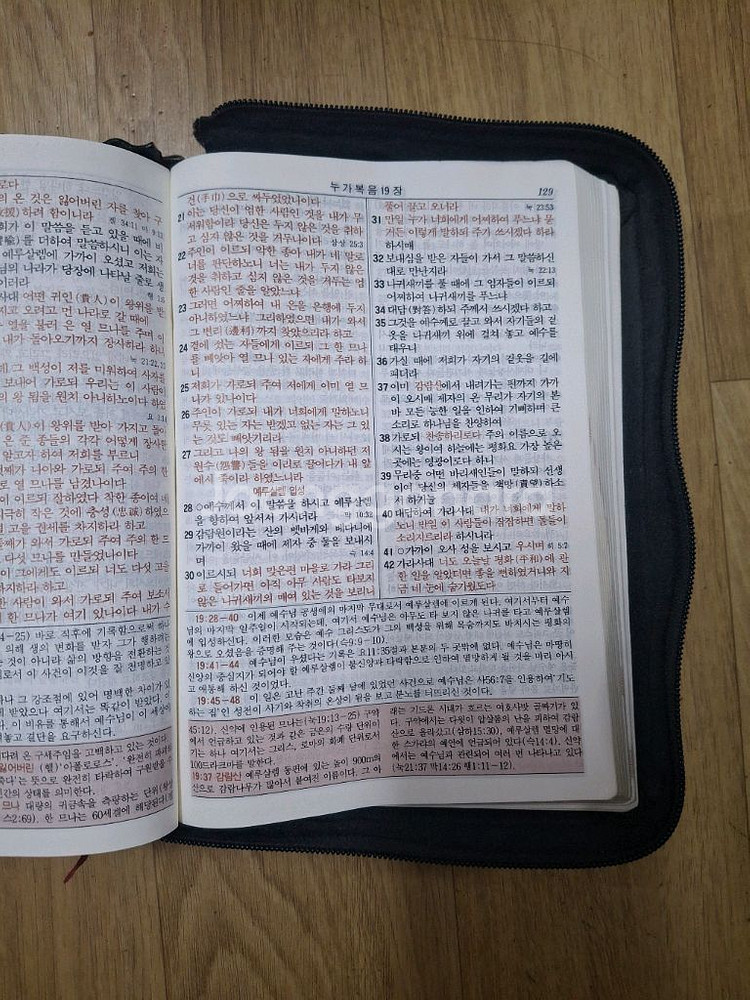 로다
의 온 것은 잃어버린 자를 찾아 구
하려 함이니라
희가 이 말씀을 듣고 있을 때에 비
를 더하여 말씀하시니 이는 자
예루살렘에 가까이 오셨고 저희는
님의 나라가 당장에 나타날 줄로 생
이러라
사대 어떤 귀인(貴人)이 왕위를 받
가지고 오려고 먼 나라로 갈 때에
열을 불러 은 열 므나를 주며 이
내가 돌아오기까지 장사하라 하니
눅 21:22, 23
데 그 백성이 저를 미워하여 사자를
보내어 가로되 우리는 이 사람이
의 왕 됨을 원치 아니하노이다 하였
(貴人)이 왕위를 받아 가지고 돌아
은 준 종들의 각각 어떻게 장사한
알고자 하여 저희를 부르니
째가 나아와 가로되 주여 주의 한
로 열 므나를 남겼나이다
이 이르되 잘하였다 착한 종이여 네
극히 작은 것에 충성(忠誠)하였으
을 권세를 차지하라 하고
둘째가 와서 가로되 주여 주의 한 므
다섯 므나를 만들었나이다
이 그에게도 이르되 너도 다섯 고을
차지하라 하고
한 사람이 와서 가로되 주여 보소서
한 므나가 여기 있나이다 내가 수
누가복음 19 장
129
건(手巾)으로 싸두었었나이다
21 이는 당신이 엄한 사람인 것을 내가 무
서워함이라 당신은 두지 않은 것을 취하
고 심지 않은 것을 거두나이다 삼상 25:3
22 주인이 이르되 악한 종아 내가 네 말로
너를 판단하노니 너는 내가 두지 않은
것을 취하고 심지 않은 것을 거두는 엄
한 사람인 줄을 알았느냐
23 그러면 어찌하여 내 은을 은행에 두지
아니하였느냐 그리하였으면 내가 와서
그 변리(邊利)까지 찾았으리라 하고
24 곁에 섰는 자들에게 이르되 그 한 므나
를 빼앗아 열 므나 있는 자에게 주라 하
니
25 저희가 가로되 주여 저에게 이미 열 므
나가 있나이다
26 주인이 가로되 내가 너희에게 말하노니
무릇 있는 자는 받겠고 없는 자는 그 있
는 것도 빼앗기리라
27 그리고 나의 왕 됨을 원치 아니하던 저
원수(怨讐)들을 이리로 끌어다가 내 앞
에서 죽이라 하였느니라
예루살렘 입성
28 ○예수께서 이 말씀을 하시고 예루살렘
을 향하여 앞서서 가시더라 막 10:32
29 감람원이라는 산의 벳바게와 베다니에
가까이 왔을 때에 제자 중 둘을 보내시
며 슥 14:4
30 이르시되 너희 맞은편 마을로 가라 그리
로 들어가면 아직 아무 사람도 타보지
않은 나귀새끼의 매여 있는 것을 보리니
풀어 끌고 오너라 눅 23:53
31 만일 누가 너희에게 어찌하여 푸느냐 묻
거든 이렇게 말하되 주가 쓰시겠다 하라
하시매
32 보내심을 받은 자들이 가서 그 말씀하신
대로 만난지라 눅 22:13
33 나귀새끼를 풀 때에 그 임자들이 이르되
어찌하여 나귀새끼를 푸느냐
34 대답(對答)하되 주께서 쓰시겠다 하고
35 그것을 예수께로 끌고 와서 자기들의 겉
옷을 나귀새끼 위에 걸쳐 놓고 예수를
태우니
36 가실 때에 저희가 자기의 겉옷을 길에
펴더라
37 이미 감람산에서 내려가는 편까지 가까
이 오시매 제자의 온 무리가 자기의 본
바 모든 능한 일을 인하여 기뻐하며 큰
소리로 하나님을 찬양하여
38 가로되 찬송하리로다 주의 이름으로 오
시는 왕이여 하늘에는 평화요 가장 높은
곳에는 영광이로다 하니
39 무리중 어떤 바리새인들이 말하되 선생
이여 당신의 제자들을 책망(責望)하소
서 하거늘
40 대답하여 가라사대 내가 너희에게 말하
노니 만일 이 사람들이 잠잠하면 돌들이
소리지르리라 하시니라
41 ○가까이 오사 성을 보시고 우시며 히 5:2
42 가라사대 너도 오늘날 평화(平和)에 관
한 일을 알았더면 좋을 뻔하였거니와 지
금 네 눈에 숨기웠도다
19:28-40 이제 예수님 공생애의 마지막 무대로서 예루살렘에 이르게 된다. 여기서부터 예수
님의 마지막 일주일이 시작되는데, 여기서 예수님은 아무도 타 보지 않은 나귀를 타고 예루살렘
에 입성하신다. 이러한 모습은 예수 그리스도가 그의 백성을 위해 목숨까지도 바치시는 평화의
왕으로 오셨음을 증명해 주는 것이다(슥9:9-10).
19:41-44 예수님이 우셨다는 기록은 요11:35절과 본문의 두 곳밖에 없다. 예수님은 마땅히
신앙의 중심지가 되어야 할 예루살렘이 불신앙과 타락함으로 인하여 멸망하게 될 것을 미리 아시
고 애통해 하신 것이었다.
19:45-48 이 일은 고난 주간 둘째 날에 있었던 사건으로 예수님은 사56:7을 인용하여 '기도
하는 집'인 성전이 사기와 착취의 온상이 됨을 보고 분노를 터뜨리신 것이다.
45:12). 신약에 인용된 므나는(눅19:13-25) 구약
에서 언급하고 있는 것과 같은 금은의 수량 단위이
기는 하나 여기서는 그리스, 로마의 화폐 단위로서
100드라크마를 말한다.
19:37 감람산 예루살렘 동편에 있는 높이 900m의
산으로 감람나무가 많아서 붙여진 이름이다. 그 아
래는 기드온 시내가 흐르는 여호사밧 골짜기가 있
다. 구약에서는 다윗이 압살롬의 난을 피하여 감람
산으로 올라갔고(삼하15:30), 예루살렘 멸망에 대
한 스가랴의 예언에 언급되어 있다(슥14:4). 신약
에서는 예수님과 관련되어 여러 번 나타나고 있다
(눅21:37 막14:26 행1:11-12).
4-25) 바로 직후에 기록함으로써 하나
의해 생의 변화를 받자 그가 행하려는
것이 아니라 삶의 방향을 전환하는 것
로서 이 사건이 이것을 잘 전명하고 있
나 그 강조점에 있어 명백한 차이가 있
되었으나 여기서는 똑같이 받았다.
이 비유를 통해서 예수님이 이 세상에
결단을 요구하신다.
다려 온 구세주임을 고백하고 있는 것이다.
잃어버린 (헬)'아폴로스'. '완전히 파괴
다'는 뜻으로 완전히 타락하여 구원받을 수
인간의 상태를 의미한다.
므나 대량의 귀금속을 측량하는 단위(왕상
스2:69). 한 므나는 60세겔에 해당된다(겔